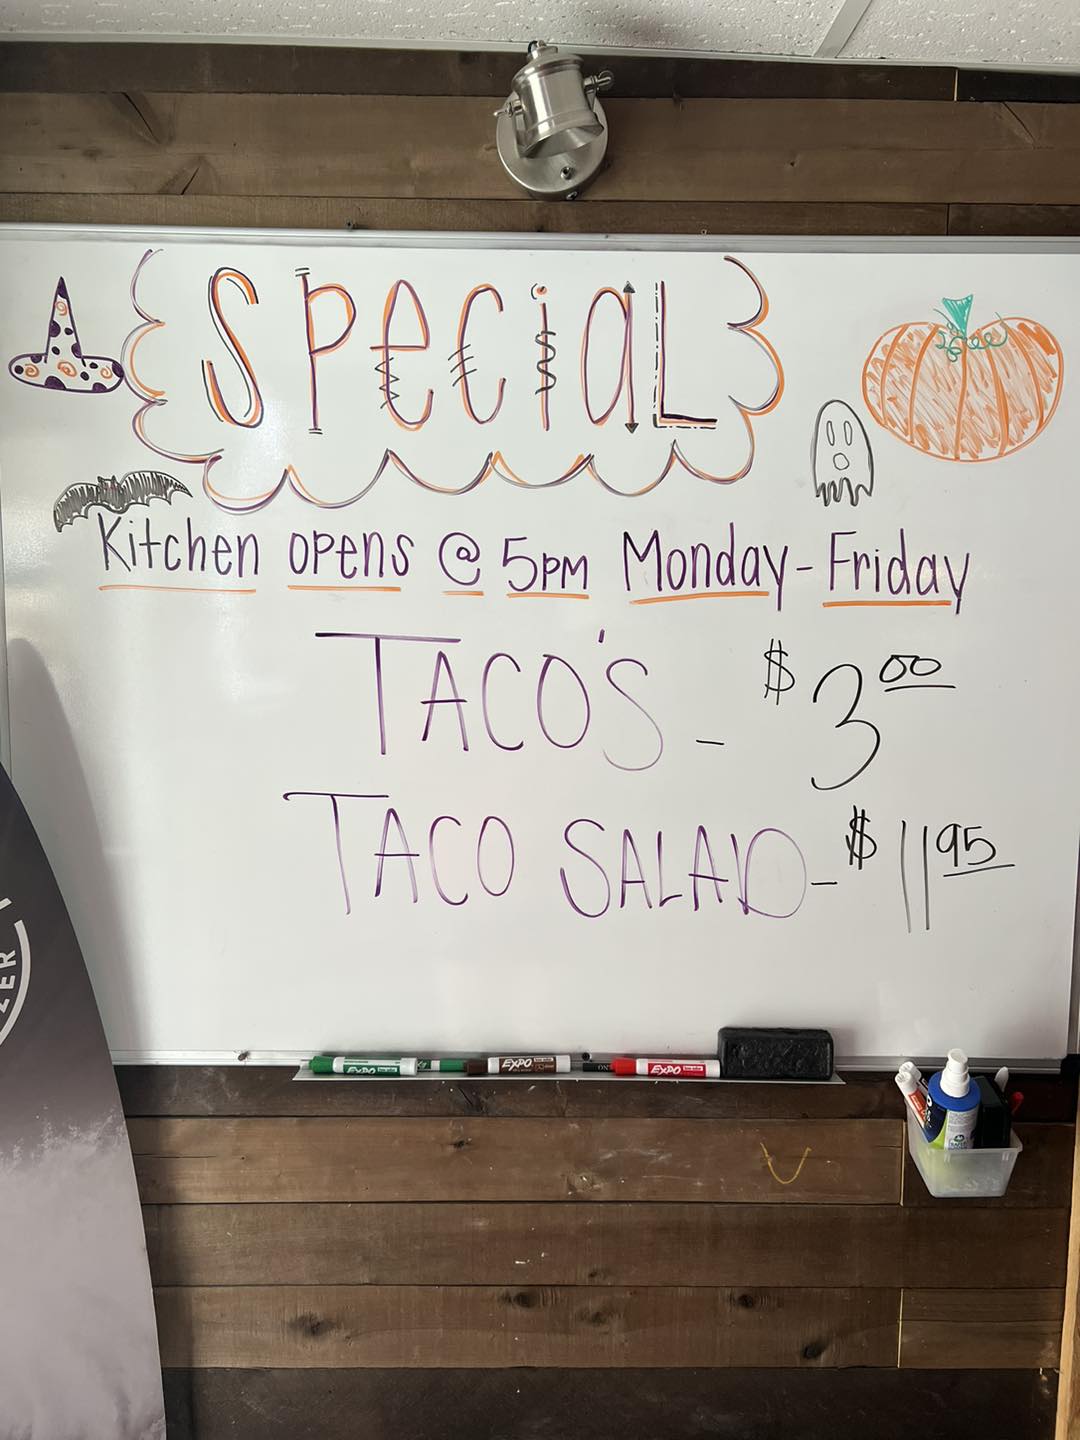 Special
Kitchen opens @ 5pm Monday-Friday
TACO'S - $3.00
TACO SALAD - $11.95
EXPO
EXPO
EXPO
ZER